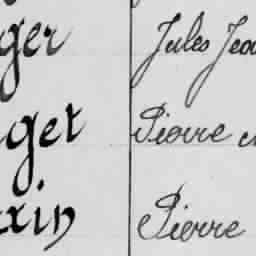 ger Jules Jea
get Pierre
xin Pierre